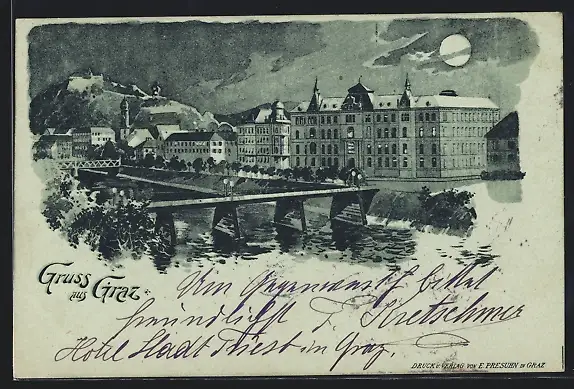 Gruss
aus Graz.
Um Gegendienst bittet
freundlichst J. Kretschmer
Hotel Stadt Triest in Graz.
DRUCK u. VERLAG VON E. PRESUHN IN GRAZ